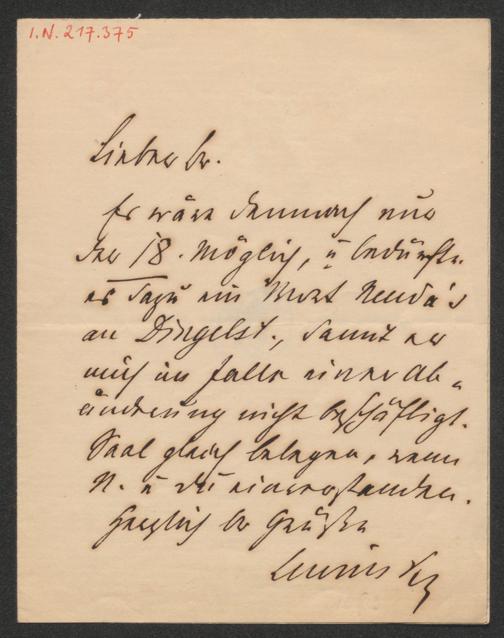 I.N. 217.375
Lieber Br.
Es wäre demnach nur
der 18. möglich, u bedürfte
es dazu ein Wort Neuda's
an Dingelst., damit er
mich im Falle einer Ab-
änderung nicht beschäftigt.
Saal gleich belegen, wenn
N. u du einverstanden.
Herzlich Gr Grüße
Lewinsky